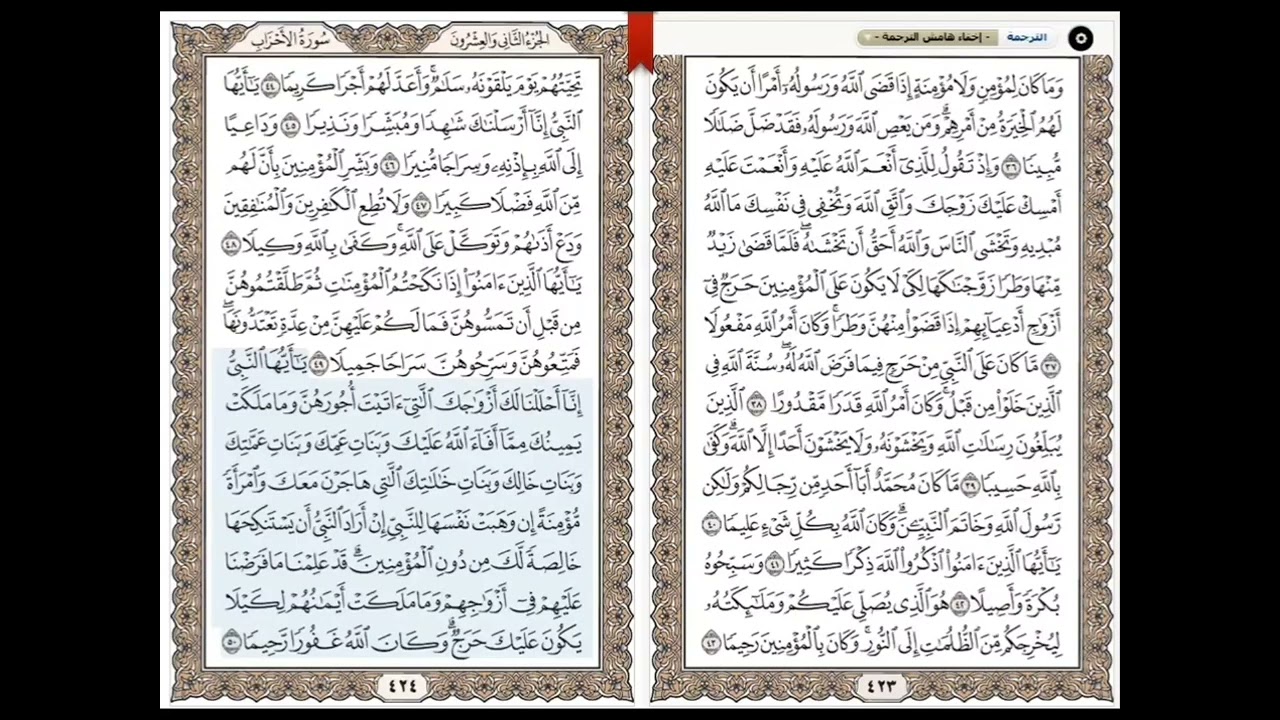 الترجمة
- إخفاء هامش الترجمة -
وَمَا كَانَ لِمُؤْمِنٍ وَلَا مُؤْمِنَةٍ إِذَا قَضَى ٱللَّهُ وَرَسُولُهُۥٓ أَمْرًا أَن يَكُونَ
لَهُمُ ٱلْخِيَرَةُ مِنْ أَمْرِهِمْ ۗ وَمَن يَعْصِ ٱللَّهَ وَرَسُولَهُۥ فَقَدْ ضَلَّ ضَلَٰلًا
مُّبِينًا ٣٦ وَإِذْ تَقُولُ لِلَّذِىٓ أَنْعَمَ ٱللَّهُ عَلَيْهِ وَأَنْعَمْتَ عَلَيْهِ
أَمْسِكْ عَلَيْكَ زَوْجَكَ وَٱتَّقِ ٱللَّهَ وَتُخْفِى فِى نَفْسِكَ مَا ٱللَّهُ
مُبْدِيهِ وَتَخْشَى ٱلنَّاسَ وَٱللَّهُ أَحَقُّ أَن تَخْشَىٰهُ ۖ فَلَمَّا قَضَىٰ زَيْدٌ
مِّنْهَا وَطَرًا زَوَّجْنَٰكَهَا لِكَىْ لَا يَكُونَ عَلَى ٱلْمُؤْمِنِينَ حَرَجٌ فِىٓ
أَزْوَٰجِ أَدْعِيَآئِهِمْ إِذَا قَضَوْا۟ مِنْهُنَّ وَطَرًا ۚ وَكَانَ أَمْرُ ٱللَّهِ مَفْعُولًا
٣٧ مَّا كَانَ عَلَى ٱلنَّبِىِّ مِنْ حَرَجٍ فِيمَا فَرَضَ ٱللَّهُ لَهُۥ ۖ سُنَّةَ ٱللَّهِ فِى
ٱلَّذِينَ خَلَوْا۟ مِن قَبْلُ ۚ وَكَانَ أَمْرُ ٱللَّهِ قَدَرًا مَّقْدُورًا ٣٨ ٱلَّذِينَ
يُبَلِّغُونَ رِسَٰلَٰتِ ٱللَّهِ وَيَخْشَوْنَهُۥ وَلَا يَخْشَوْنَ أَحَدًا إِلَّا ٱللَّهَ ۗ وَكَفَىٰ
بِٱللَّهِ حَسِيبًا ٣٩ مَّا كَانَ مُحَمَّدٌ أَبَآ أَحَدٍ مِّن رِّجَالِكُمْ وَلَٰكِن
رَّسُولَ ٱللَّهِ وَخَاتَمَ ٱلنَّبِيِّـۧنَ ۗ وَكَانَ ٱللَّهُ بِكُلِّ شَىْءٍ عَلِيمًا ٤٠
يَٰٓأَيُّهَا ٱلَّذِينَ ءَامَنُوا۟ ٱذْكُرُوا۟ ٱللَّهَ ذِكْرًا كَثِيرًا ٤١ وَسَبِّحُوهُ
بُكْرَةً وَأَصِيلًا ٤٢ هُوَ ٱلَّذِى يُصَلِّى عَلَيْكُمْ وَمَلَٰٓئِكَتُهُۥ
لِيُخْرِجَكُم مِّنَ ٱلظُّلُمَٰتِ إِلَى ٱلنُّورِ ۚ وَكَانَ بِٱلْمُؤْمِنِينَ رَحِيمًا ٤٣
٤٢٣
الجُزْءُ الثَّانِى وَالعِشْرُونَ
سُورَةُ الأَحْزَابِ
تَحِيَّتُهُمْ يَوْمَ يَلْقَوْنَهُۥ سَلَٰمٌ ۚ وَأَعَدَّ لَهُمْ أَجْرًا كَرِيمًا ٤٤ يَٰٓأَيُّهَا
ٱلنَّبِىُّ إِنَّآ أَرْسَلْنَٰكَ شَٰهِدًا وَمُبَشِّرًا وَنَذِيرًا ٤٥ وَدَاعِيًا
إِلَى ٱللَّهِ بِإِذْنِهِۦ وَسِرَاجًا مُّنِيرًا ٤٦ وَبَشِّرِ ٱلْمُؤْمِنِينَ بِأَنَّ لَهُم
مِّنَ ٱللَّهِ فَضْلًا كَبِيرًا ٤٧ وَلَا تُطِعِ ٱلْكَٰفِرِينَ وَٱلْمُنَٰفِقِينَ
وَدَعْ أَذَىٰهُمْ وَتَوَكَّلْ عَلَى ٱللَّهِ ۚ وَكَفَىٰ بِٱللَّهِ وَكِيلًا ٤٨
يَٰٓأَيُّهَا ٱلَّذِينَ ءَامَنُوٓا۟ إِذَا نَكَحْتُمُ ٱلْمُؤْمِنَٰتِ ثُمَّ طَلَّقْتُمُوهُنَّ
مِن قَبْلِ أَن تَمَسُّوهُنَّ فَمَا لَكُمْ عَلَيْهِنَّ مِنْ عِدَّةٍ تَعْتَدُّونَهَا ۖ
فَمَتِّعُوهُنَّ وَسَرِّحُوهُنَّ سَرَاحًا جَمِيلًا ٤٩ يَٰٓأَيُّهَا ٱلنَّبِىُّ
إِنَّآ أَحْلَلْنَا لَكَ أَزْوَٰجَكَ ٱلَّٰتِىٓ ءَاتَيْتَ أُجُورَهُنَّ وَمَا مَلَكَتْ
يَمِينُكَ مِمَّآ أَفَآءَ ٱللَّهُ عَلَيْكَ وَبَنَاتِ عَمِّكَ وَبَنَاتِ عَمَّٰتِكَ
وَبَنَاتِ خَالِكَ وَبَنَاتِ خَٰلَٰتِكَ ٱلَّٰتِى هَاجَرْنَ مَعَكَ وَٱمْرَأَةً
مُّؤْمِنَةً إِن وَهَبَتْ نَفْسَهَا لِلنَّبِىِّ إِنْ أَرَادَ ٱلنَّبِىُّ أَن يَسْتَنكِحَهَا
خَالِصَةً لَّكَ مِن دُونِ ٱلْمُؤْمِنِينَ ۗ قَدْ عَلِمْنَا مَا فَرَضْنَا
عَلَيْهِمْ فِىٓ أَزْوَٰجِهِمْ وَمَا مَلَكَتْ أَيْمَٰنُهُمْ لِكَيْلَا
يَكُونَ عَلَيْكَ حَرَجٌ ۗ وَكَانَ ٱللَّهُ غَفُورًا رَّحِيمًا ٥٠
٤٢٤